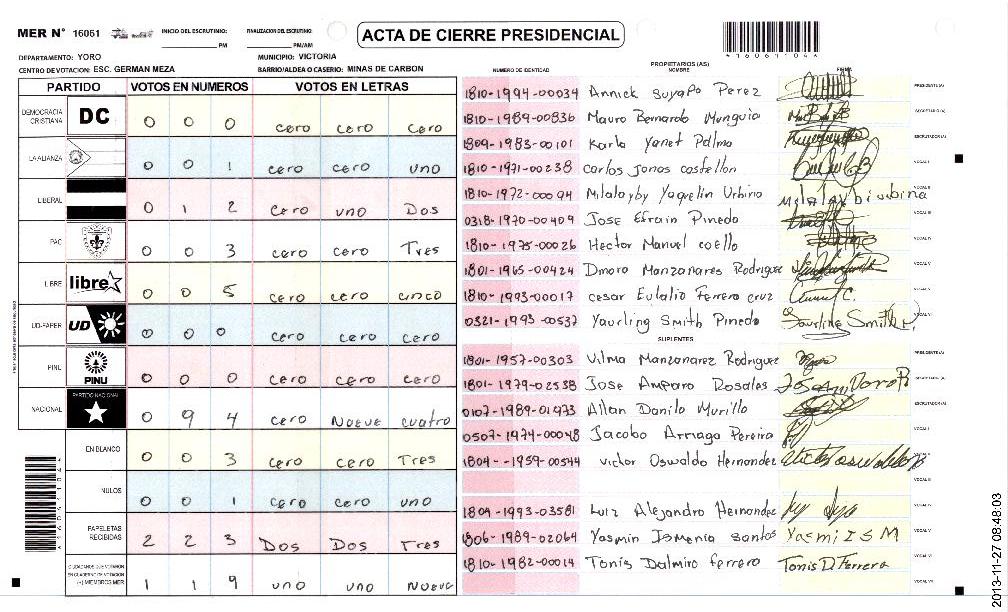 MER N° 16061
INICIO DEL ESCRUTINIO: PM
FINALIZACION DEL ESCRUTINIO: PM/AM
ACTA DE CIERRE PRESIDENCIAL
DEPARTAMENTO: YORO
MUNICIPIO: VICTORIA
CENTRO DE VOTACION: ESC. GERMAN MEZA
BARRIO/ALDEA O CASERIO: MINAS DE CARBON
PARTIDO VOTOS EN NUMEROS VOTOS EN LETRAS
DEMOCRACIA CRISTIANA DC 0 0 0 cero cero cero
LA ALIANZA 0 0 1 cero cero uno
LIBERAL 0 1 2 cero uno Dos
PAC 0 0 3 cero cero Tres
LIBRE libre 0 0 5 cero cero cinco
UD-FAPER UD 0 0 0 cero cero cero
PINU PINU 0 0 0 cero cero cero
NACIONAL PARTIDO NACIONAL 0 9 4 cero Nueve cuatro
EN BLANCO 0 0 3 cero cero Tres
NULOS 0 0 1 cero cero uno
PAPELETAS RECIBIDAS 2 2 3 Dos Dos Tres
CIUDADANOS QUE VOTARON EN CUADERNO DE VOTACION (+) MIEMBROS MER 1 1 9 uno uno Nueve
NUMERO DE IDENTIDAD
PROPIETARIOS (AS)
NOMBRE
FIRMA
1810-1994-00034 Annick Suyapo Perez PRESIDENTE(A)
1810-1989-00836 Mauro Bernardo Munguia SECRETARIO(A)
1809-1983-00101 Karla Yanet Palma ESCRUTADOR(A)
1810-1971-00238 carlos Jonas castellon VOCAL I
1810-1972-00094 Milaloyby Yaqelin Urbina VOCAL II
0318-1970-00409 Jose Efrain Pinedo VOCAL III
1810-1975-00026 Hector Manuel coello VOCAL IV
1801-1965-00424 Dmora Manzanares Rodriguez VOCAL V
1810-1993-00017 cesar Eulalio Ferrera cruz VOCAL VI
0321-1993-00537 Yaurling Smith Pineda
SUPLENTES
1801-1957-00303 Vilma Manzanarez Rodriguez PRESIDENTE(A)
1801-1979-02538 Jose Amparo Rosales SECRETARIO(A)
0107-1989-01973 Allan Danilo Murillo ESCRUTADOR(A)
0507-1974-00048 Jacobo Arriaga Pereira VOCAL I
1804--1959-00544 victor Oswaldo Hernandez VOCAL II
VOCAL III
1804-1993-03581 Luiz Alejandro Hernandez VOCAL IV
1806-1989-02064 Yasmin Ismenia santos Yasmi I S M VOCAL V
1810-1982-00014 Tonis Dalmiro ferrero Tonis D Ferrera VOCAL VI
VOCAL VII
2013-11-27 08:48:03